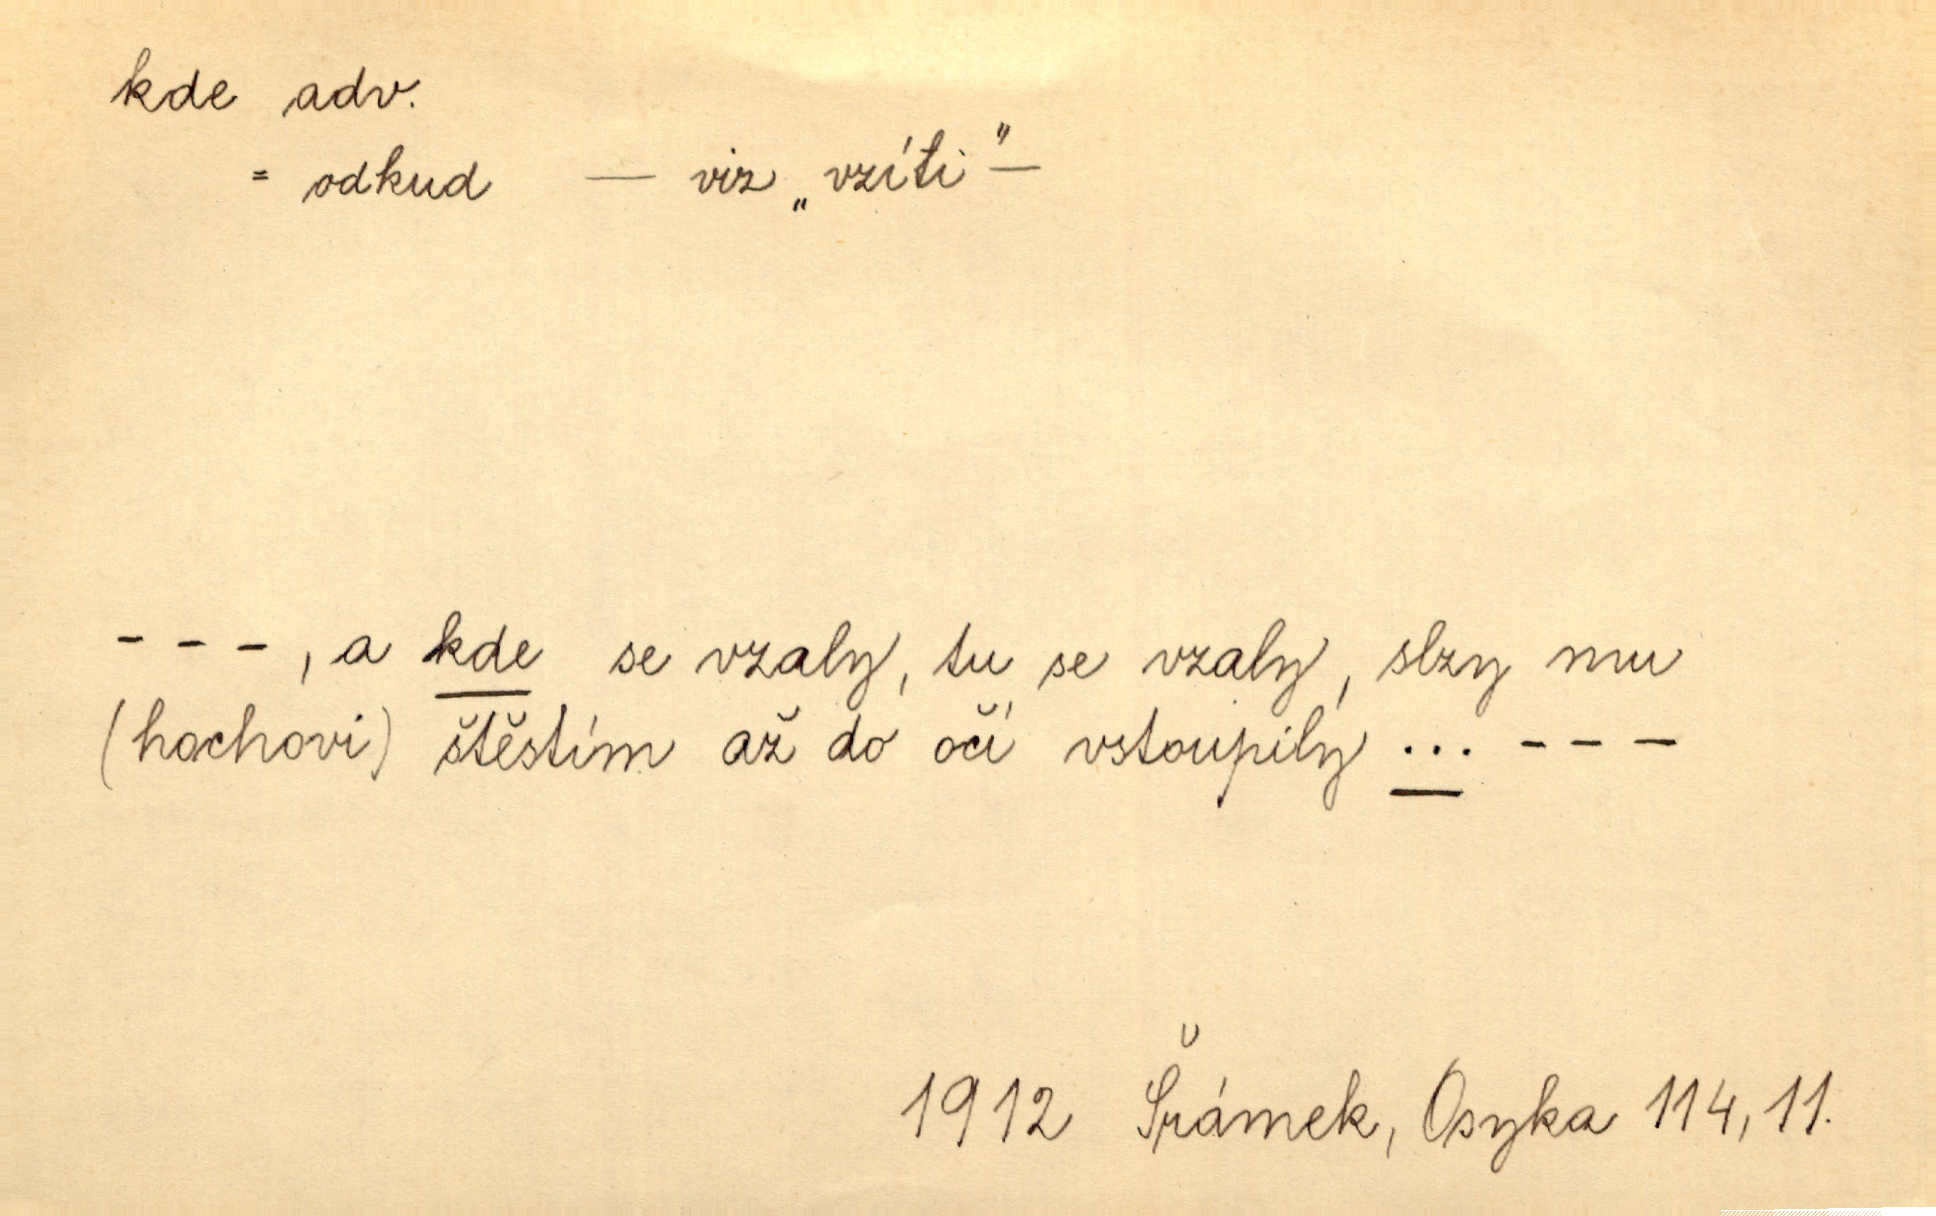 kde adv.
= odkud — viz „vzíti" —
- - - , a kde se vzaly, tu se vzaly, slzy mu
(hochovi) štěstím až do očí vstoupily ... - - -
1912 Šrámek, Osyka 114, 11.